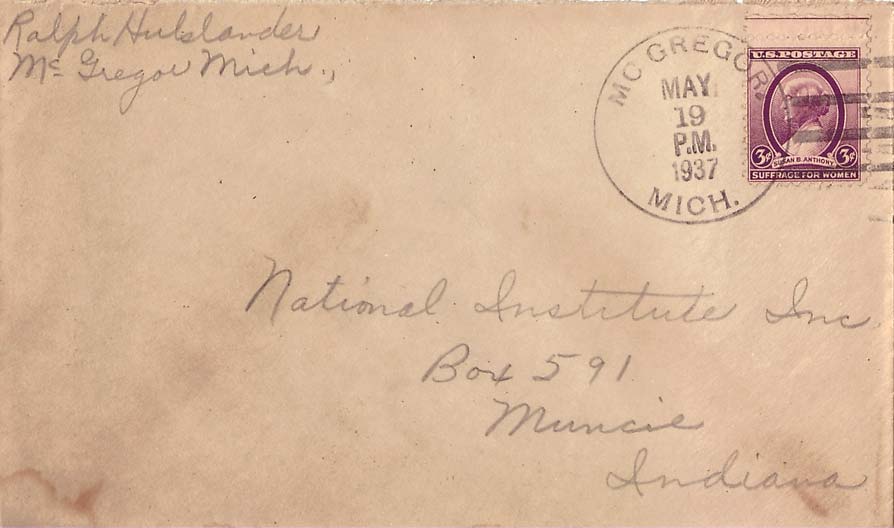 Ralph Hulslander
Mc Gregor Mich.,
MC GREGOR.
MAY
19
P.M.
1937
MICH.
U.S. POSTAGE
3¢ SUSAN B. ANTHONY 3¢
SUFFRAGE FOR WOMEN
National Institute Inc
Box 591
Muncie
Indiana